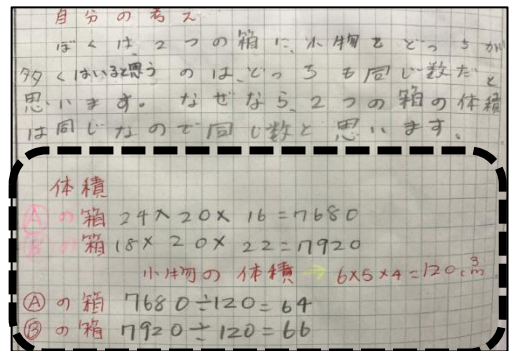 自分の考え
ぼくは、2つの箱に、小物をどっちが
多くはいると思うのは、どっちも同じ数だと
思います。なぜなら、2つの箱の体積
は同じなので同じ数と思います。
体積
Ⓐの箱 24×20×16=7680
Ⓑの箱 18×20×22=7920
小物の体積→6×5×4=120cm³
Ⓐの箱 7680÷120=64
Ⓑの箱 7920÷120=66